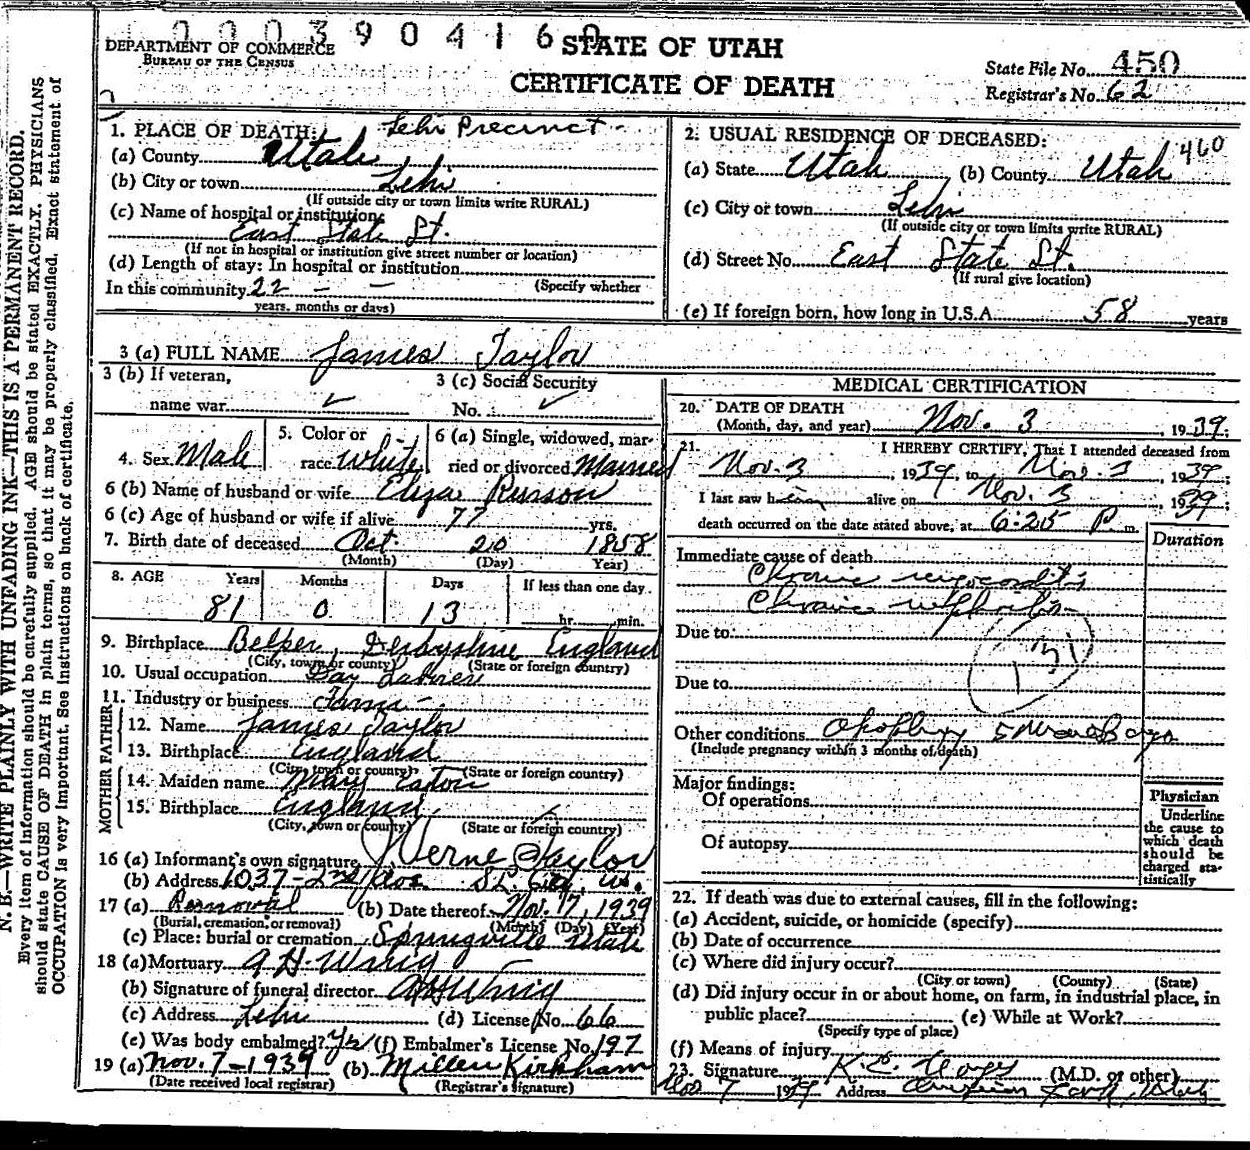 000390416
DEPARTMENT OF COMMERCE
BUREAU OF THE CENSUS
STATE OF UTAH
CERTIFICATE OF DEATH
State File No. 450
Registrar's No. 62
N. B.—WRITE PLAINLY WITH UNFADING INK—THIS IS A PERMANENT RECORD.
Every item of information should be carefully supplied. AGE should be stated EXACTLY. PHYSICIANS
should state CAUSE OF DEATH in plain terms, so that it may be properly classified. Exact statement of
OCCUPATION is very important. See instructions on back of certificate.
1. PLACE OF DEATH: Lehi Precinct
(a) County Utah
(b) City or town Lehi
(If outside city or town limits write RURAL)
(c) Name of hospital or institution:
East State St.
(If not in hospital or institution give street number or location)
(d) Length of stay: In hospital or institution
In this community 22 - - (Specify whether
years, months or days)
2. USUAL RESIDENCE OF DECEASED:
460
(a) State Utah (b) County Utah
(c) City or town Lehi
(If outside city or town limits write RURAL)
(d) Street No. East State St.
(If rural give location)
(e) If foreign born, how long in U.S.A. 58 years
3 (a) FULL NAME James Taylor
3 (b) If veteran,
name war ✓
3 (c) Social Security
No. ✓
4. Sex Male
5. Color or
race White
6 (a) Single, widowed, mar-
ried or divorced Married
6 (b) Name of husband or wife Eliza Russon
6 (c) Age of husband or wife if alive 77 yrs.
7. Birth date of deceased Oct 20 1858
(Month) (Day) Year)
8. AGE Years Months Days If less than one day
81 0 13 hr. min.
9. Birthplace Belper, Derbyshire England
(City, town or county) (State or foreign country)
10. Usual occupation Day Laborer
11. Industry or business Farm -
FATHER
12. Name James Taylor
13. Birthplace England
(City, town or county) (State or foreign country)
MOTHER
14. Maiden name Mary Eaton
15. Birthplace England
(City, town or county) (State or foreign country)
16 (a) Informant's own signature Verne Taylor
(b) Address 1037-2nd Ave. S.L. City, Ut.
17 (a) Removal (b) Date thereof Nov. 7, 1939
(Burial, cremation, or removal) (Month) (Day) (Year)
(c) Place: burial or cremation Springville Utah
18 (a) Mortuary A H. Wing
(b) Signature of funeral director AH Wing
(c) Address Lehi (d) License No. 66
(e) Was body embalmed? Yes (f) Embalmer's License No. 197
19 (a) Nov. 7-1939 (b) Millen Kirkham
(Date received local registrar) (Registrar's signature)
MEDICAL CERTIFICATION
20. DATE OF DEATH
(Month, day, and year) Nov. 3, 1939;
21. I HEREBY CERTIFY, That I attended deceased from
Nov. 3, 1939, to Nov. 3, 1939;
I last saw him alive on Nov. 3 1939;
death occurred on the date stated above, at 6:25 P m.
Duration
Immediate cause of death
Chronic myocarditis
Chronic nephritis
Due to:
131
Due to
Other conditions Apoplexy 5 years ago
(Include pregnancy within 3 months of death)
Major findings:
Of operations
Of autopsy
Physician
Underline
the cause to
which death
should be
charged sta-
tistically
22. If death was due to external causes, fill in the following:
(a) Accident, suicide, or homicide (specify)
(b) Date of occurrence
(c) Where did injury occur?
(City or town) (County) (State)
(d) Did injury occur in or about home, on farm, in industrial place, in
public place? (e) While at Work?
(Specify type of place)
(f) Means of injury
23. Signature K.E. (M.D. or other)
Nov 7 1939 Address American Fork, Utah